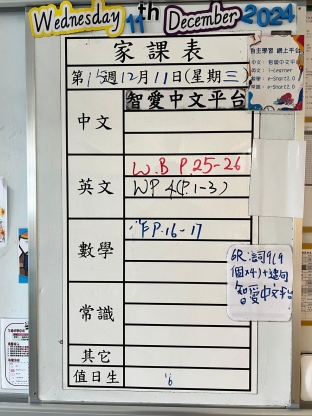 Wednesday 11th December 2024
家課表
第15週12月11日(星期三)
自主學習 網上平台
中文：智愛中文平台
英文：i-Learner
數學：e-Smart2.0
常識：e-Smart2.0
中文
智愛中文平台
英文
W.B P.25-26
WP 4(P.1-3)
數學
作P.16-17
GR：詞9(9
個×4)+造句
智愛中文平台
常識
其它
值日生
16